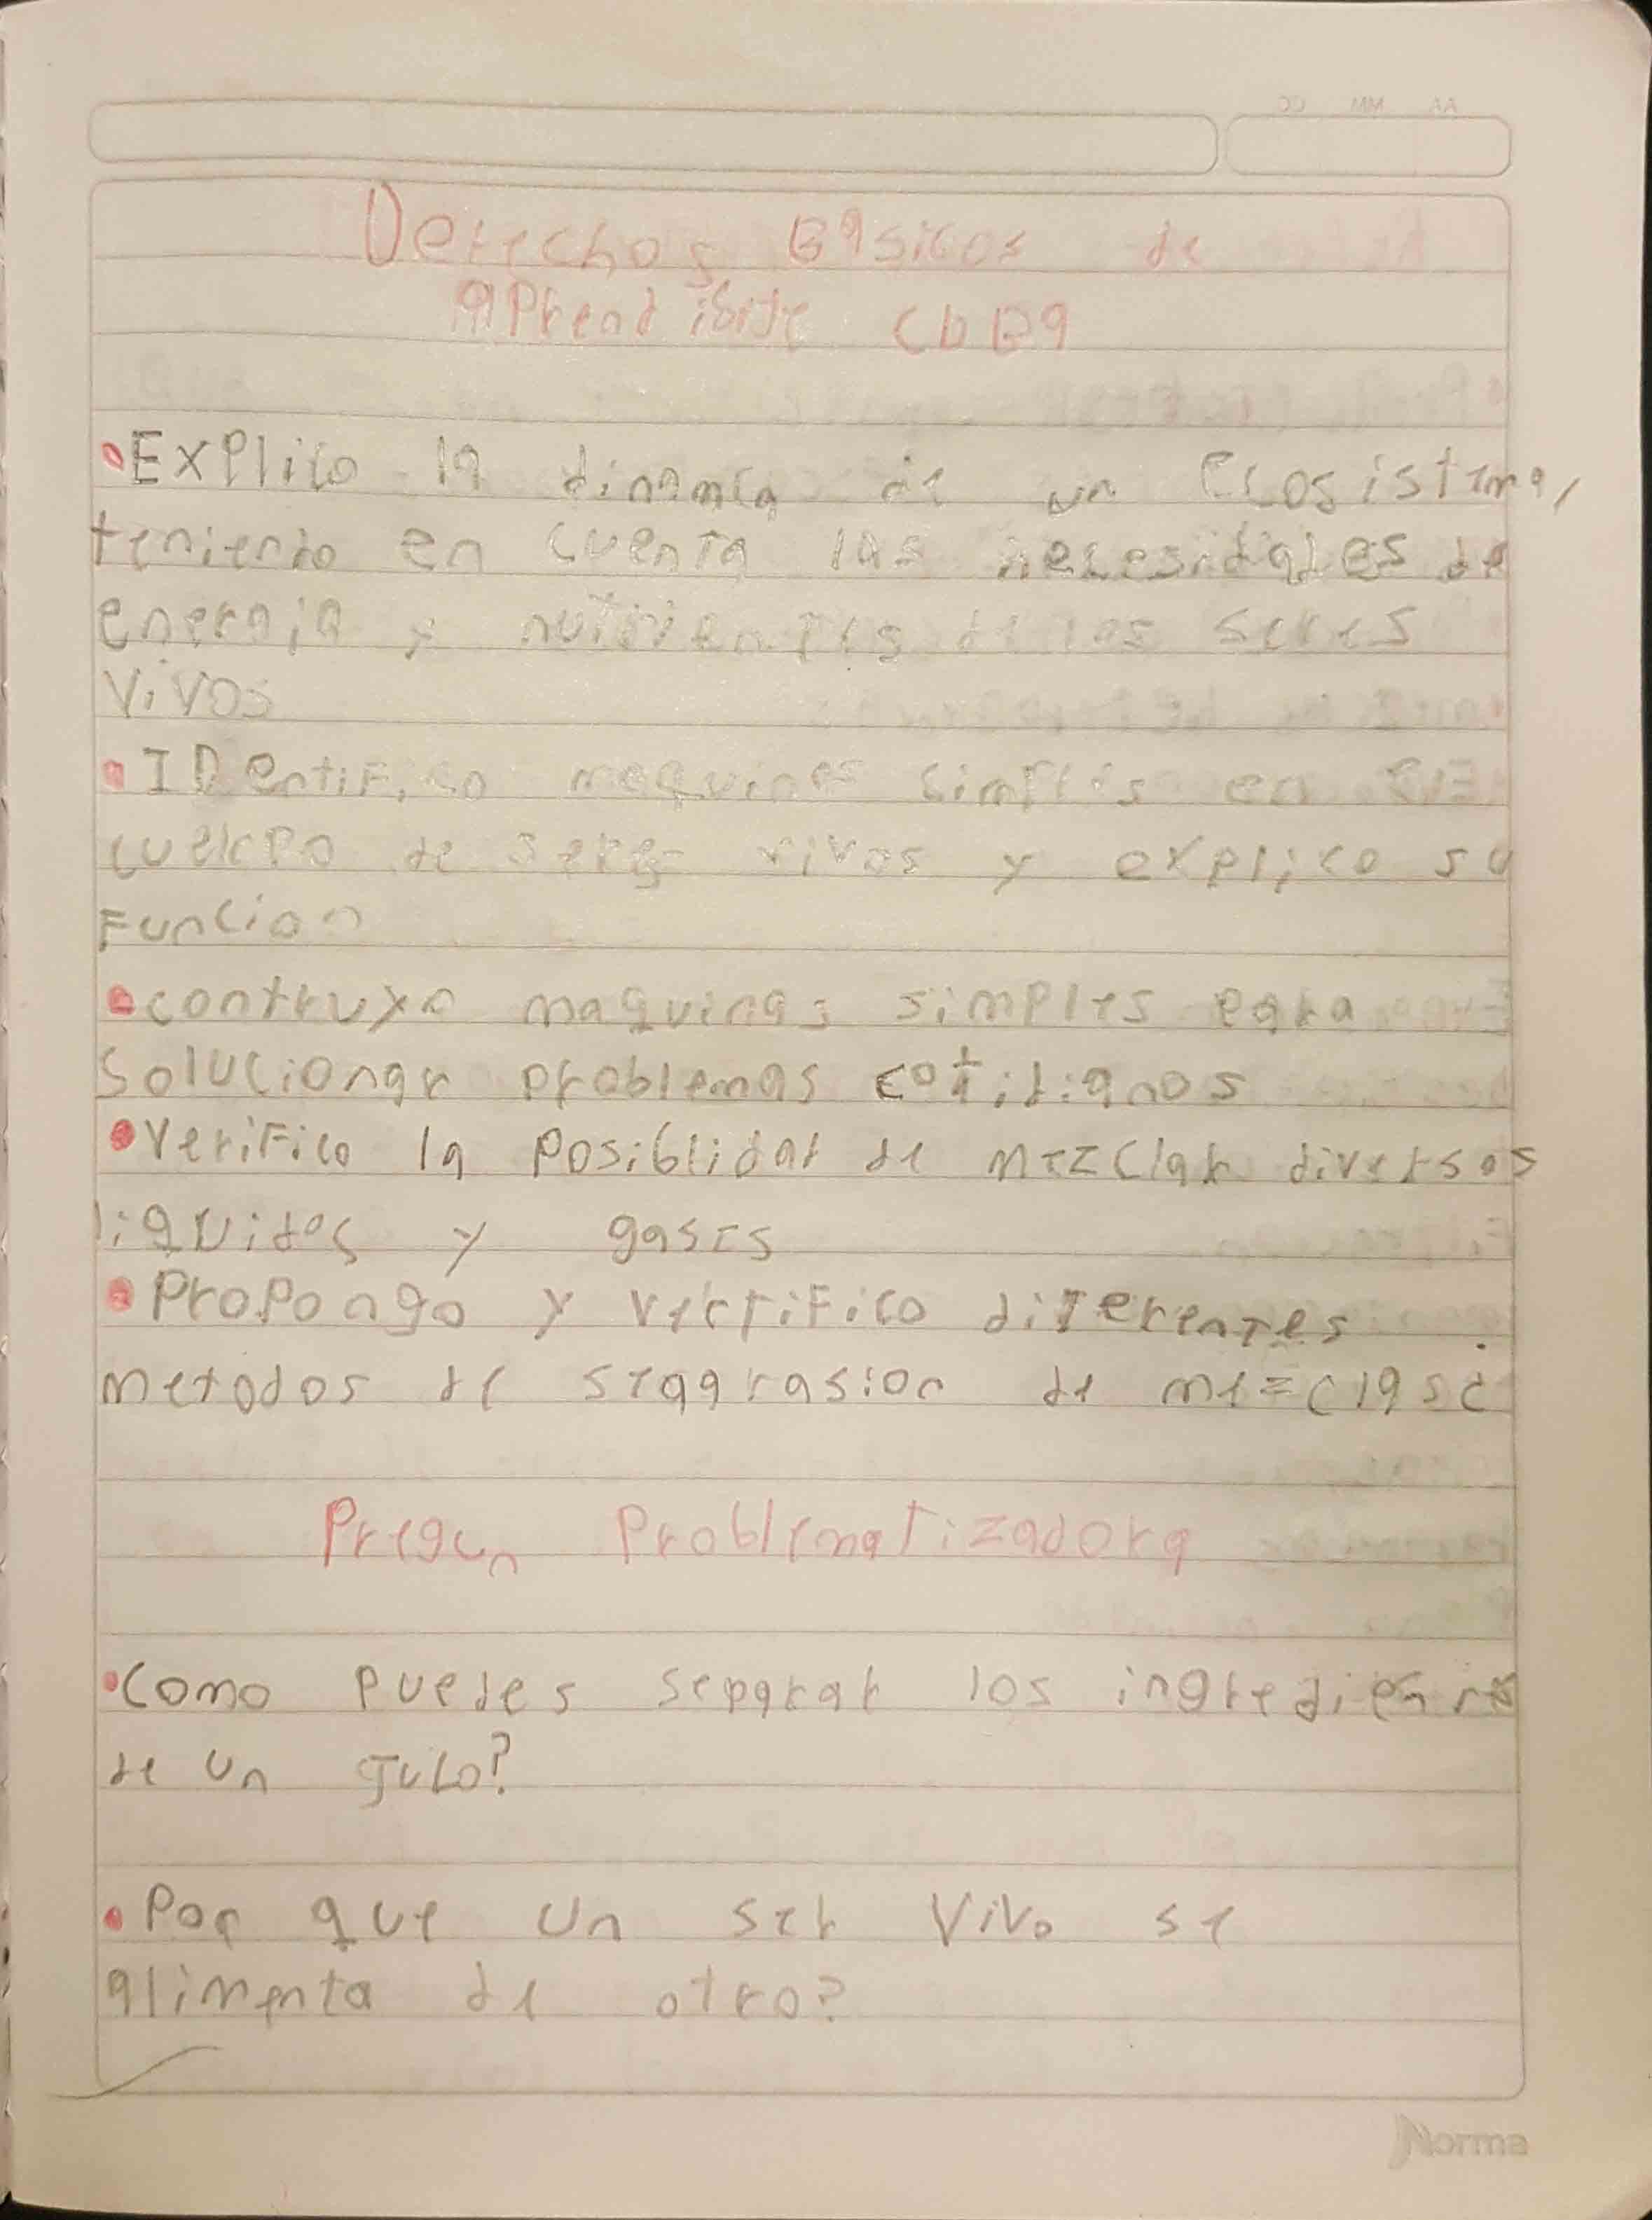 Derechos Básicos de
aprendisije CDBa
• Explico la dinamca de un Ecosistema,
teniendo en cuenta las necesidades de
energia y nutrientes de los seres
vivos
• IDentifico maquinas simples en El
cuerpo de seres vivos y explico su
Funcion
• contruyo maquinas simples para
Solucionar problemas cotidianos
• Verifico la posiblidad de mezclar diversos
liquidos y gases
• Propongo y vertifico diferentes
metodos de de mezclas
Pregun Problematizadora
• Como puedes separar los ingredientes
de un
• Por que un ser vivo se
alimenta de otro?
Norma